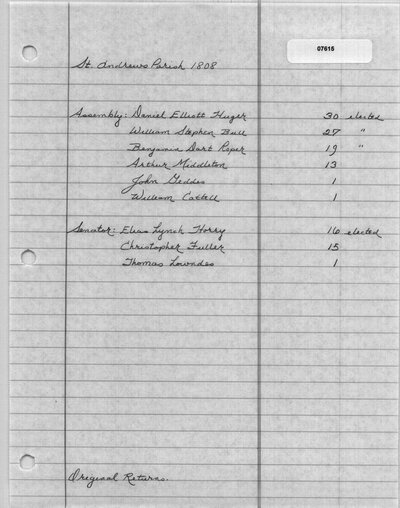 07615
St. Andrews Parish 1808
Assembly: Daniel Elliott Huger 30 elected
William Stephen Bull 27 "
Benjamin Dart Roper 19 "
Arthur Middleton 13
John Geddes 1
William Cattell 1
Senator: Elias Lynch Horry 16 elected
Christopher Fuller 15
Thomas Lowndes 1
Original Returns.